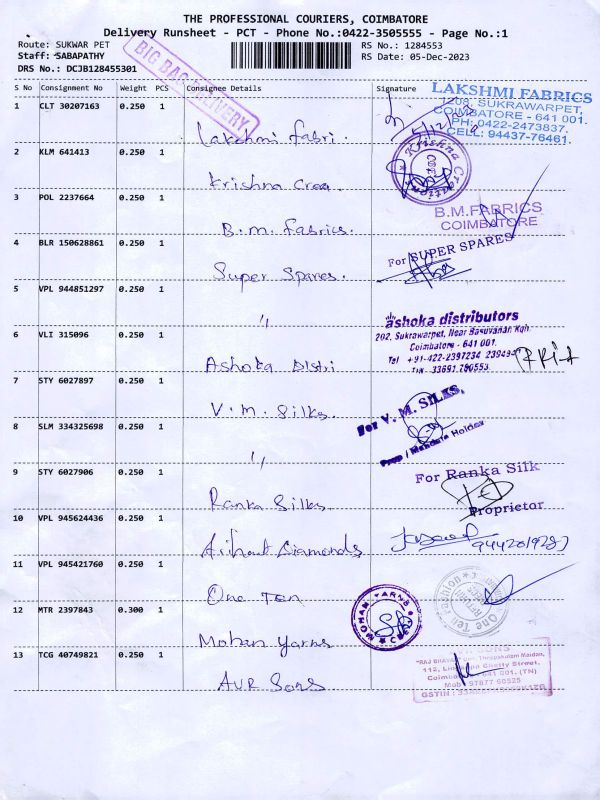 THE PROFESSIONAL COURIERS, COIMBATORE
Delivery Runsheet - PCT - Phone No.:0422-3505555 - Page No.:1
Route: SUKWAR PET
Staff: SABAPATHY
DRS No.: DCJB128455301
RS No.: 1284553
RS Date: 05-Dec-2023
BIG BAG DELIVERY
S No Consignment No Weight PCS Consignee Details Signature
1 CLT 30207163 0.250 1
Lakshmi Fabri.
LAKSHMI FABRICS
1208, SUKRAWARPET,
COIMBATORE - 641 001.
PH: 0422-2473837.
CELL: 94437-76461.
2 KLM 641413 0.250 1
Krishna Crea.
Krishna Creations
3 POL 2237664 0.250 1
B.M. Fabrics.
B.M.FABRICS
COIMBATORE
4 BLR 150628861 0.250 1
Super Spares.
For SUPER SPARES
5 VPL 944851297 0.250 1
"
6 VLI 315096 0.250 1
Ashoka Distri
ashoka distributors
202, Sukrawarpet, Near Basuvanan Koil,
Coimbatore - 641 001.
Tel +91-422-2397234
7 STY 6027897 0.250 1
V.M. Silks.
For V. M. SILKS,
Prop / Mandate Holder
8 SLM 334325698 0.250 1
"
9 STY 6027906 0.250 1
Ranka Silks
For Ranka Silk
Proprietor
10 VPL 945624436 0.250 1
Arihant Diamonds
11 VPL 945421760 0.250 1
One Ten
One Ten Fashion
12 MTR 2397843 0.300 1
Mohan Yarns
MOHAN YARNS
13 TCG 40749821 0.250 1
AVR Sons
SONS
Coimbatore - 641 001. (TN)
GSTIN :